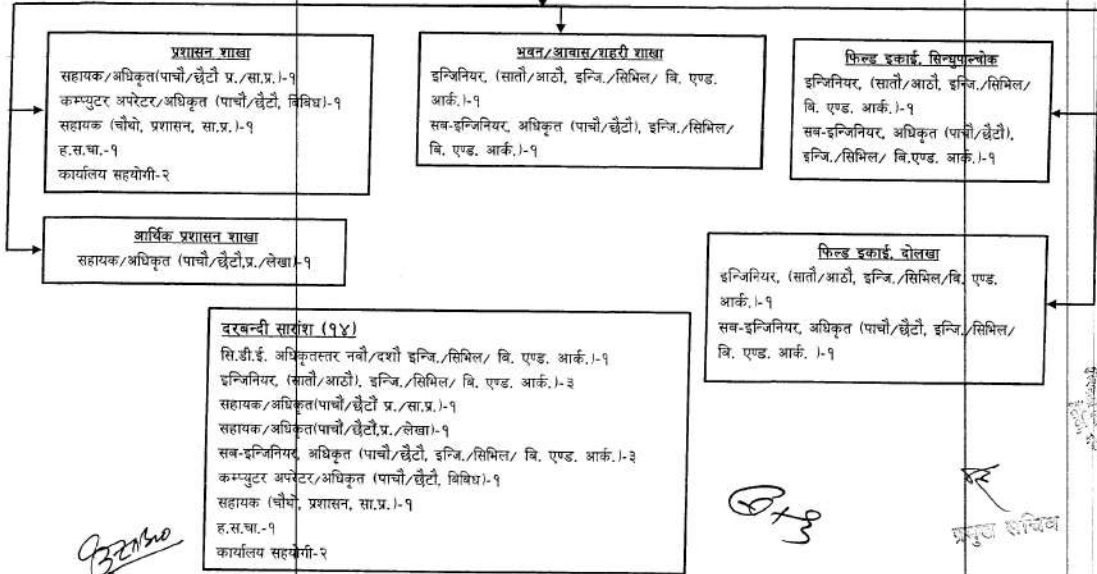 प्रशासन शाखा
सहायक/अधिकृत(पाचौ/छैटौ प्र./सा.प्र.)-१
कम्प्युटर अपरेटर/अधिकृत (पाचौ/छैटौ, बिबिध)-१
सहायक (चौथो, प्रशासन, सा.प्र.)-१
ह.स.चा.-१
कार्यालय सहयोगी-२
आर्थिक प्रशासन शाखा
सहायक/अधिकृत (पाचौ/छैटौ,प्र./लेखा)-१
भवन/आवास/शहरी शाखा
इन्जिनियर, (सातौ/आठौ, इन्जि./सिभिल/ बि. एण्ड.
आर्क.)-१
सब-इन्जिनियर, अधिकृत (पाचौ/छैटौ), इन्जि./सिभिल/
बि. एण्ड. आर्क.)-१
फिल्ड इकाई, सिन्धुपाल्चोक
इन्जिनियर, (सातौ/आठौ, इन्जि./सिभिल/
बि. एण्ड. आर्क.)-१
सब-इन्जिनियर, अधिकृत (पाचौ/छैटौ),
इन्जि./सिभिल/ बि.एण्ड. आर्क.)-१
फिल्ड इकाई, दोलखा
इन्जिनियर, (सातौ/आठौ, इन्जि./सिभिल/बि. एण्ड.
आर्क.)-१
सब-इन्जिनियर, अधिकृत (पाचौ/छैटौ, इन्जि./सिभिल/
बि. एण्ड. आर्क. )-१
दरबन्दी सारांश (१४)
सि.डी.ई. अधिकृतस्तर नवौ/दशौ इन्जि./सिभिल/ बि. एण्ड. आर्क.)-१
इन्जिनियर, (सातौ/आठौ), इन्जि./सिभिल/ बि. एण्ड. आर्क.)-३
सहायक/अधिकृत(पाचौ/छैटौ प्र./सा.प्र.)-१
सहायक/अधिकृत(पाचौ/छैटौ,प्र./लेखा)-१
सब-इन्जिनियर, अधिकृत (पाचौ/छैटौ, इन्जि./सिभिल/ बि. एण्ड. आर्क.)-३
कम्प्युटर अपरेटर/अधिकृत (पाचौ/छैटौ, बिबिध)-१
सहायक (चौथो, प्रशासन, सा.प्र.)-१
ह.स.चा.-१
कार्यालय सहयोगी-२
प्रमुख सचिव